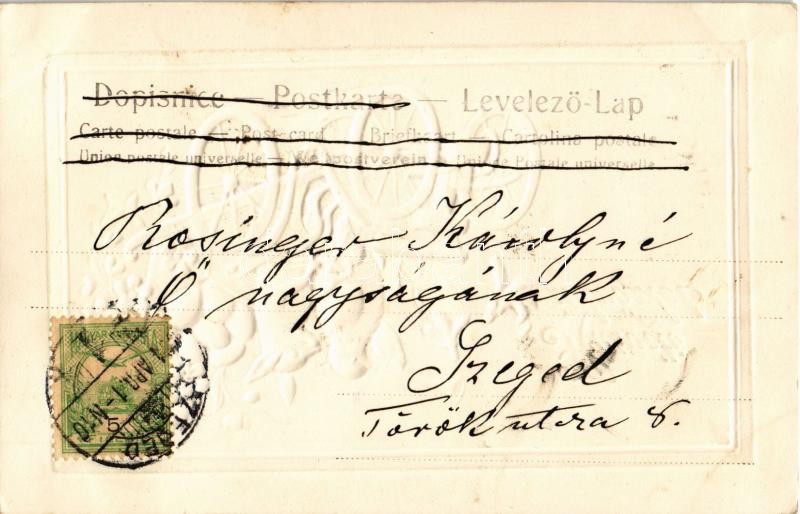 Dopisnice — Postkarta — Levelező-Lap
Carte postale — Post-card — Briefkaart — Cartolina postale
Union postale universelle — Weltpostverein — Unione Postale universelle
Rosinger Károlyné
Ő nagyságának
Szeged
Török utcza 8.
5